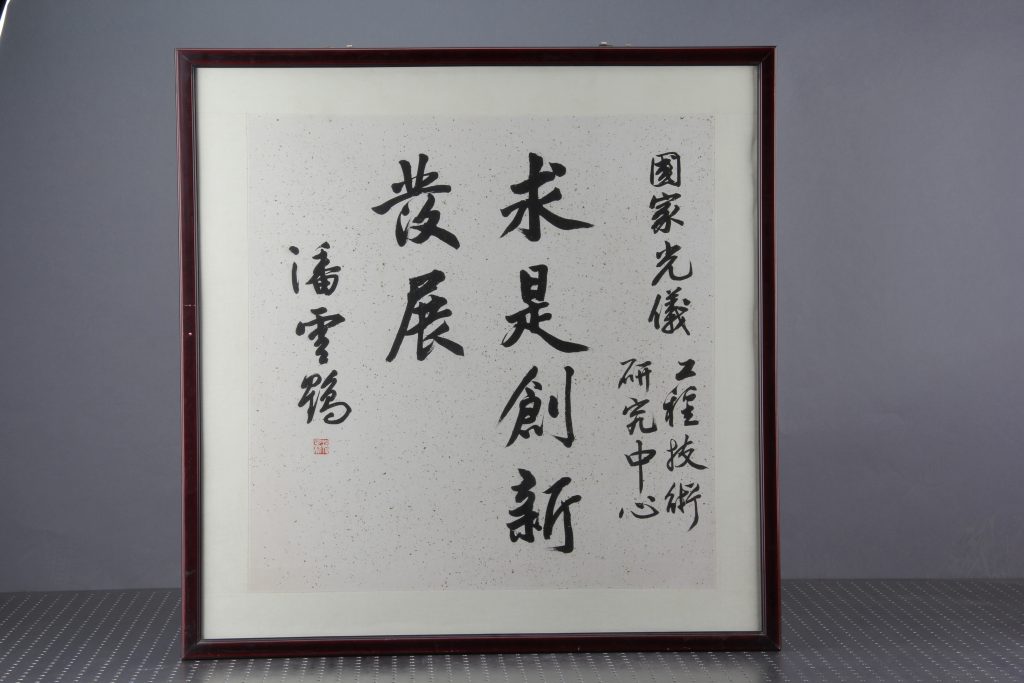 國家光儀
工程技術
研究中心
求是創新
發展
潘雲鶴